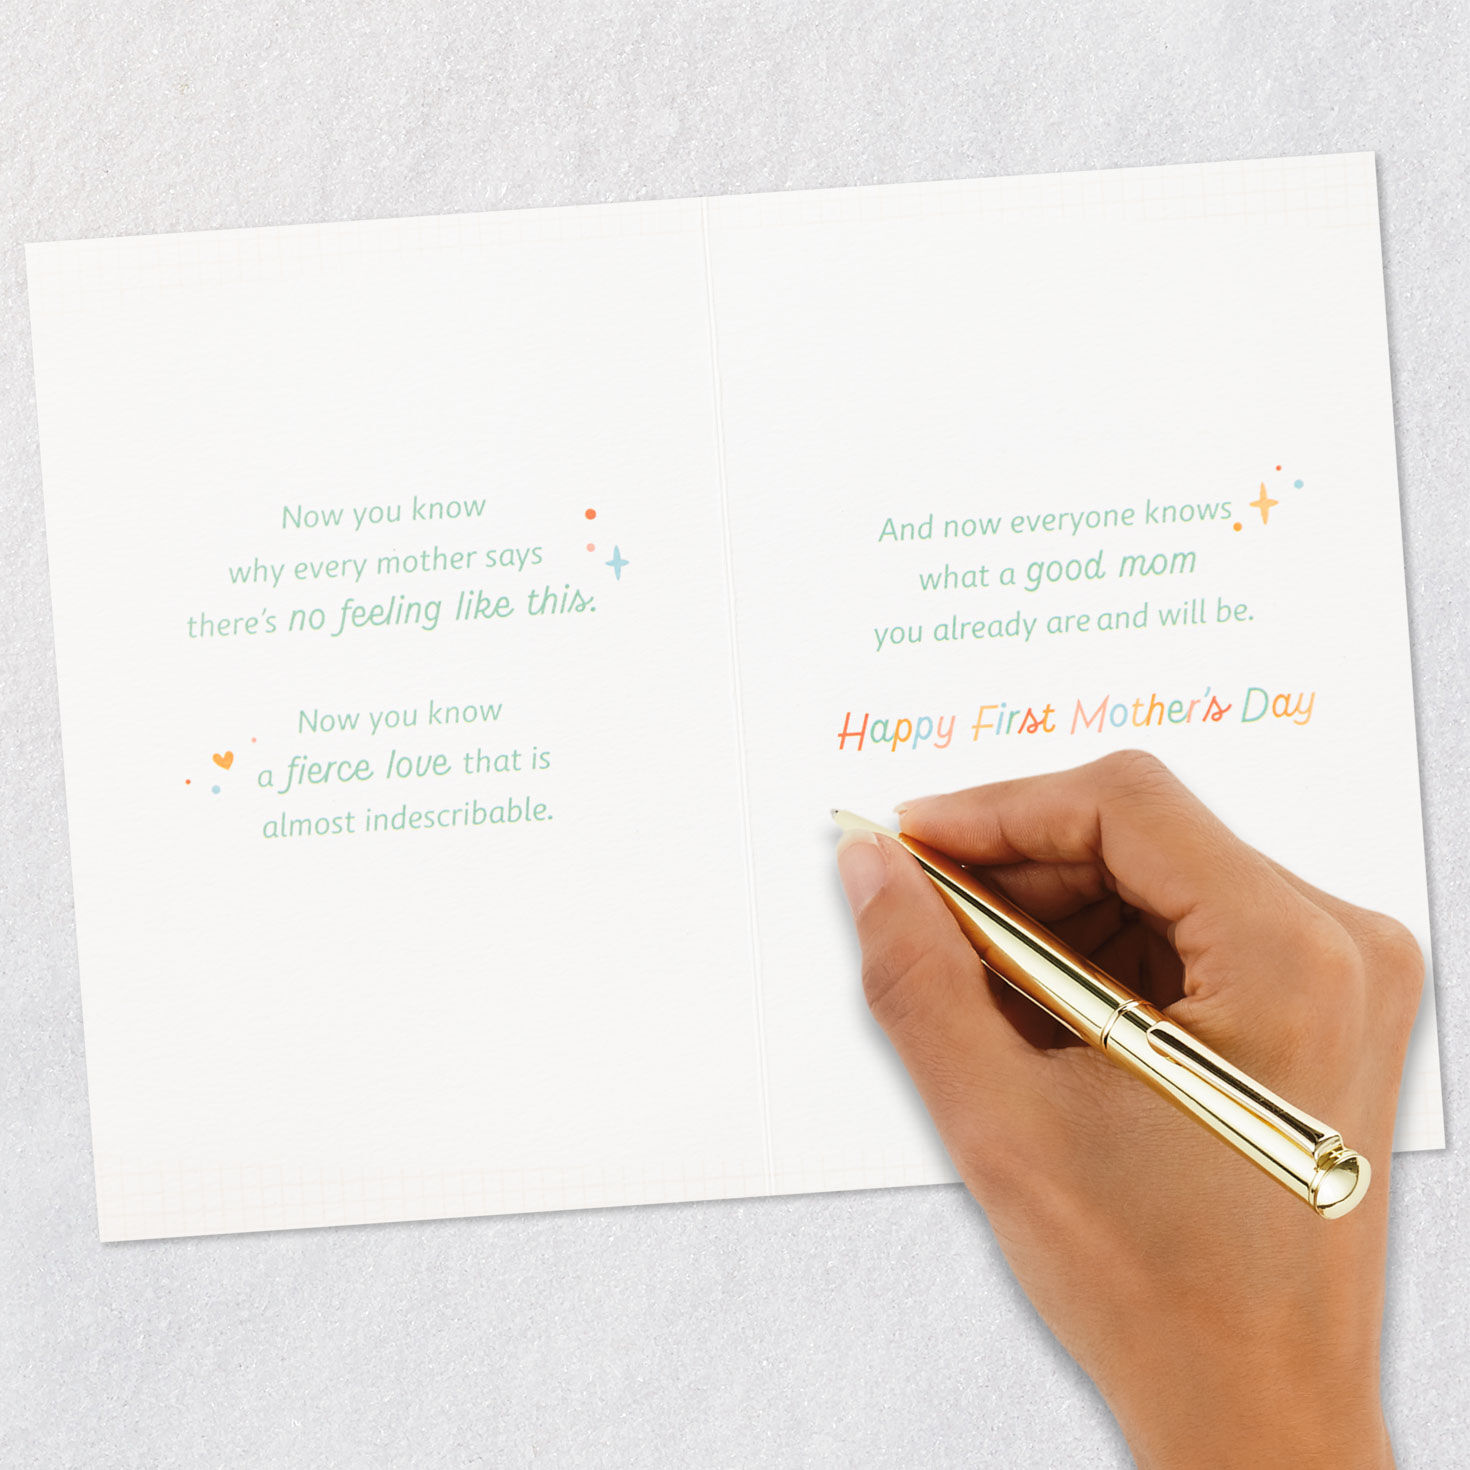 Now you know
why every mother says
there's no feeling like this.
Now you know
a fierce love that is
almost indescribable.
And now everyone knows
what a good mom
you already are and will be.
Happy First Mother's Day